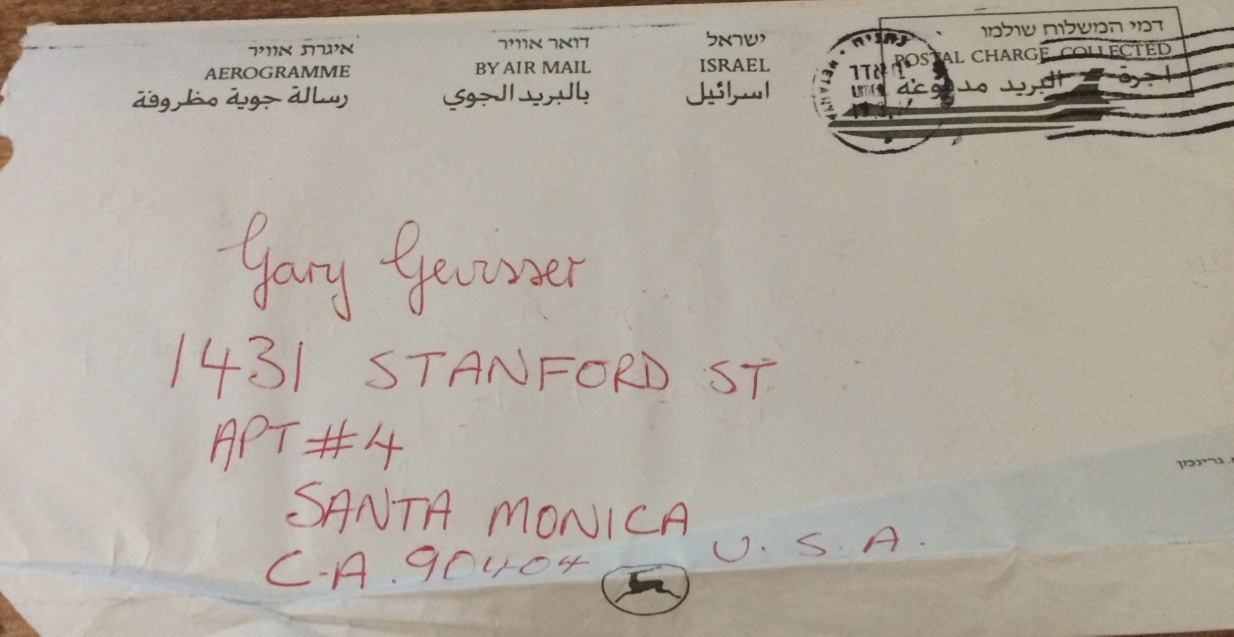 איגרת אוויר
AEROGRAMME
رسالة جوية مظروفة
דואר אוויר
BY AIR MAIL
بالبريد الجوي
ישראל
ISRAEL
اسرائيل
דמי המשלוח שולמו
POSTAL CHARGE COLLECTED
اجرة البريد مدفوعه
נתניה
NETANYA
Gary Gevisser
1431 STANFORD ST
APT #4
SANTA MONICA
CA. 90404 U.S.A.
גרינכון